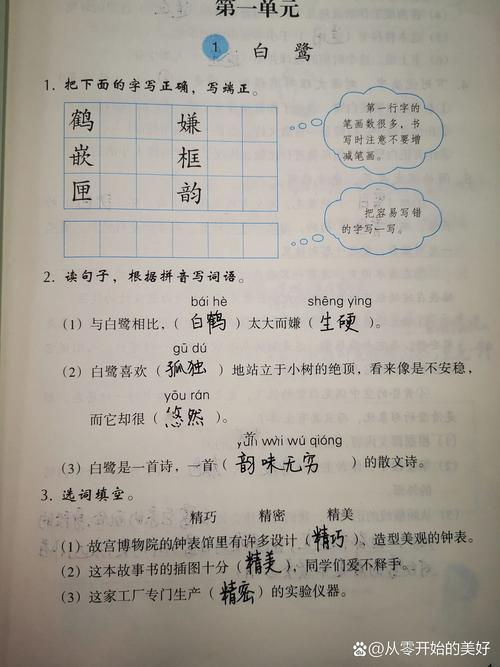 第一单元
1 白鹭
1. 把下面的字写正确，写端正。
鹤 嫌
嵌 框
匣 韵
第一行字的
笔画数很多，书
写时注意不要增
减笔画。
把容易写错
的字写一写。
2. 读句子，根据拼音写词语。
bái hè shēng yìng
(1) 与白鹭相比，（白鹤）太大而嫌（生硬）。
gū dú
(2) 白鹭喜欢（孤独）地站立于小树的绝顶，看来像是不安稳，
yōu rán
而它却很（悠然）。
yùn wèi wú qióng
(3) 白鹭是一首诗，一首（韵味无穷）的散文诗。
3. 选词填空。
精巧 精密 精美
(1) 故宫博物院的钟表馆里有许多设计（精巧）、造型美观的钟表。
(2) 这本故事书的插图十分（精美），同学们爱不释手。
(3) 这家工厂专门生产（精密）的实验仪器。
@从零开始的美好